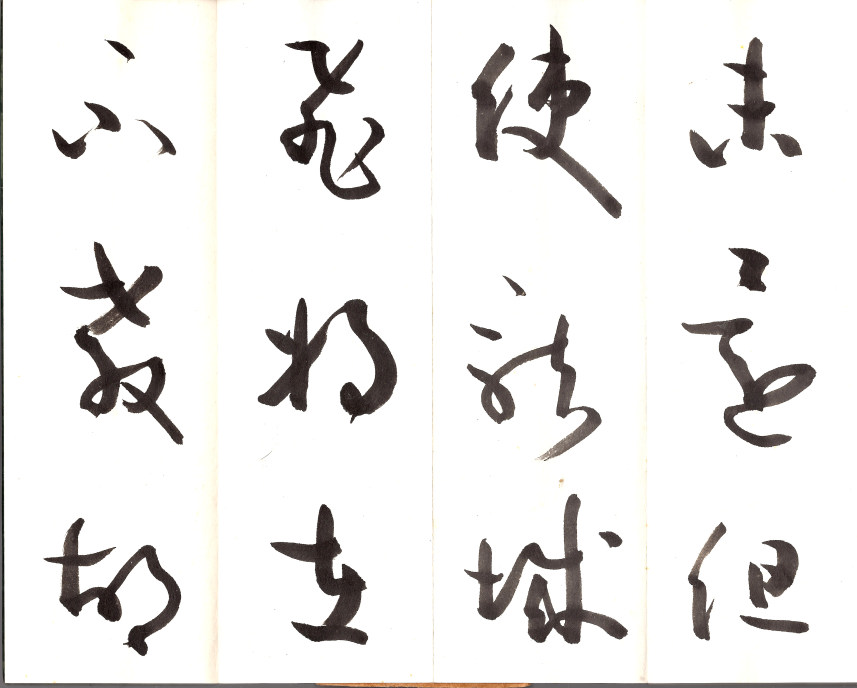 未還但
使龍城
飛將在
不教胡